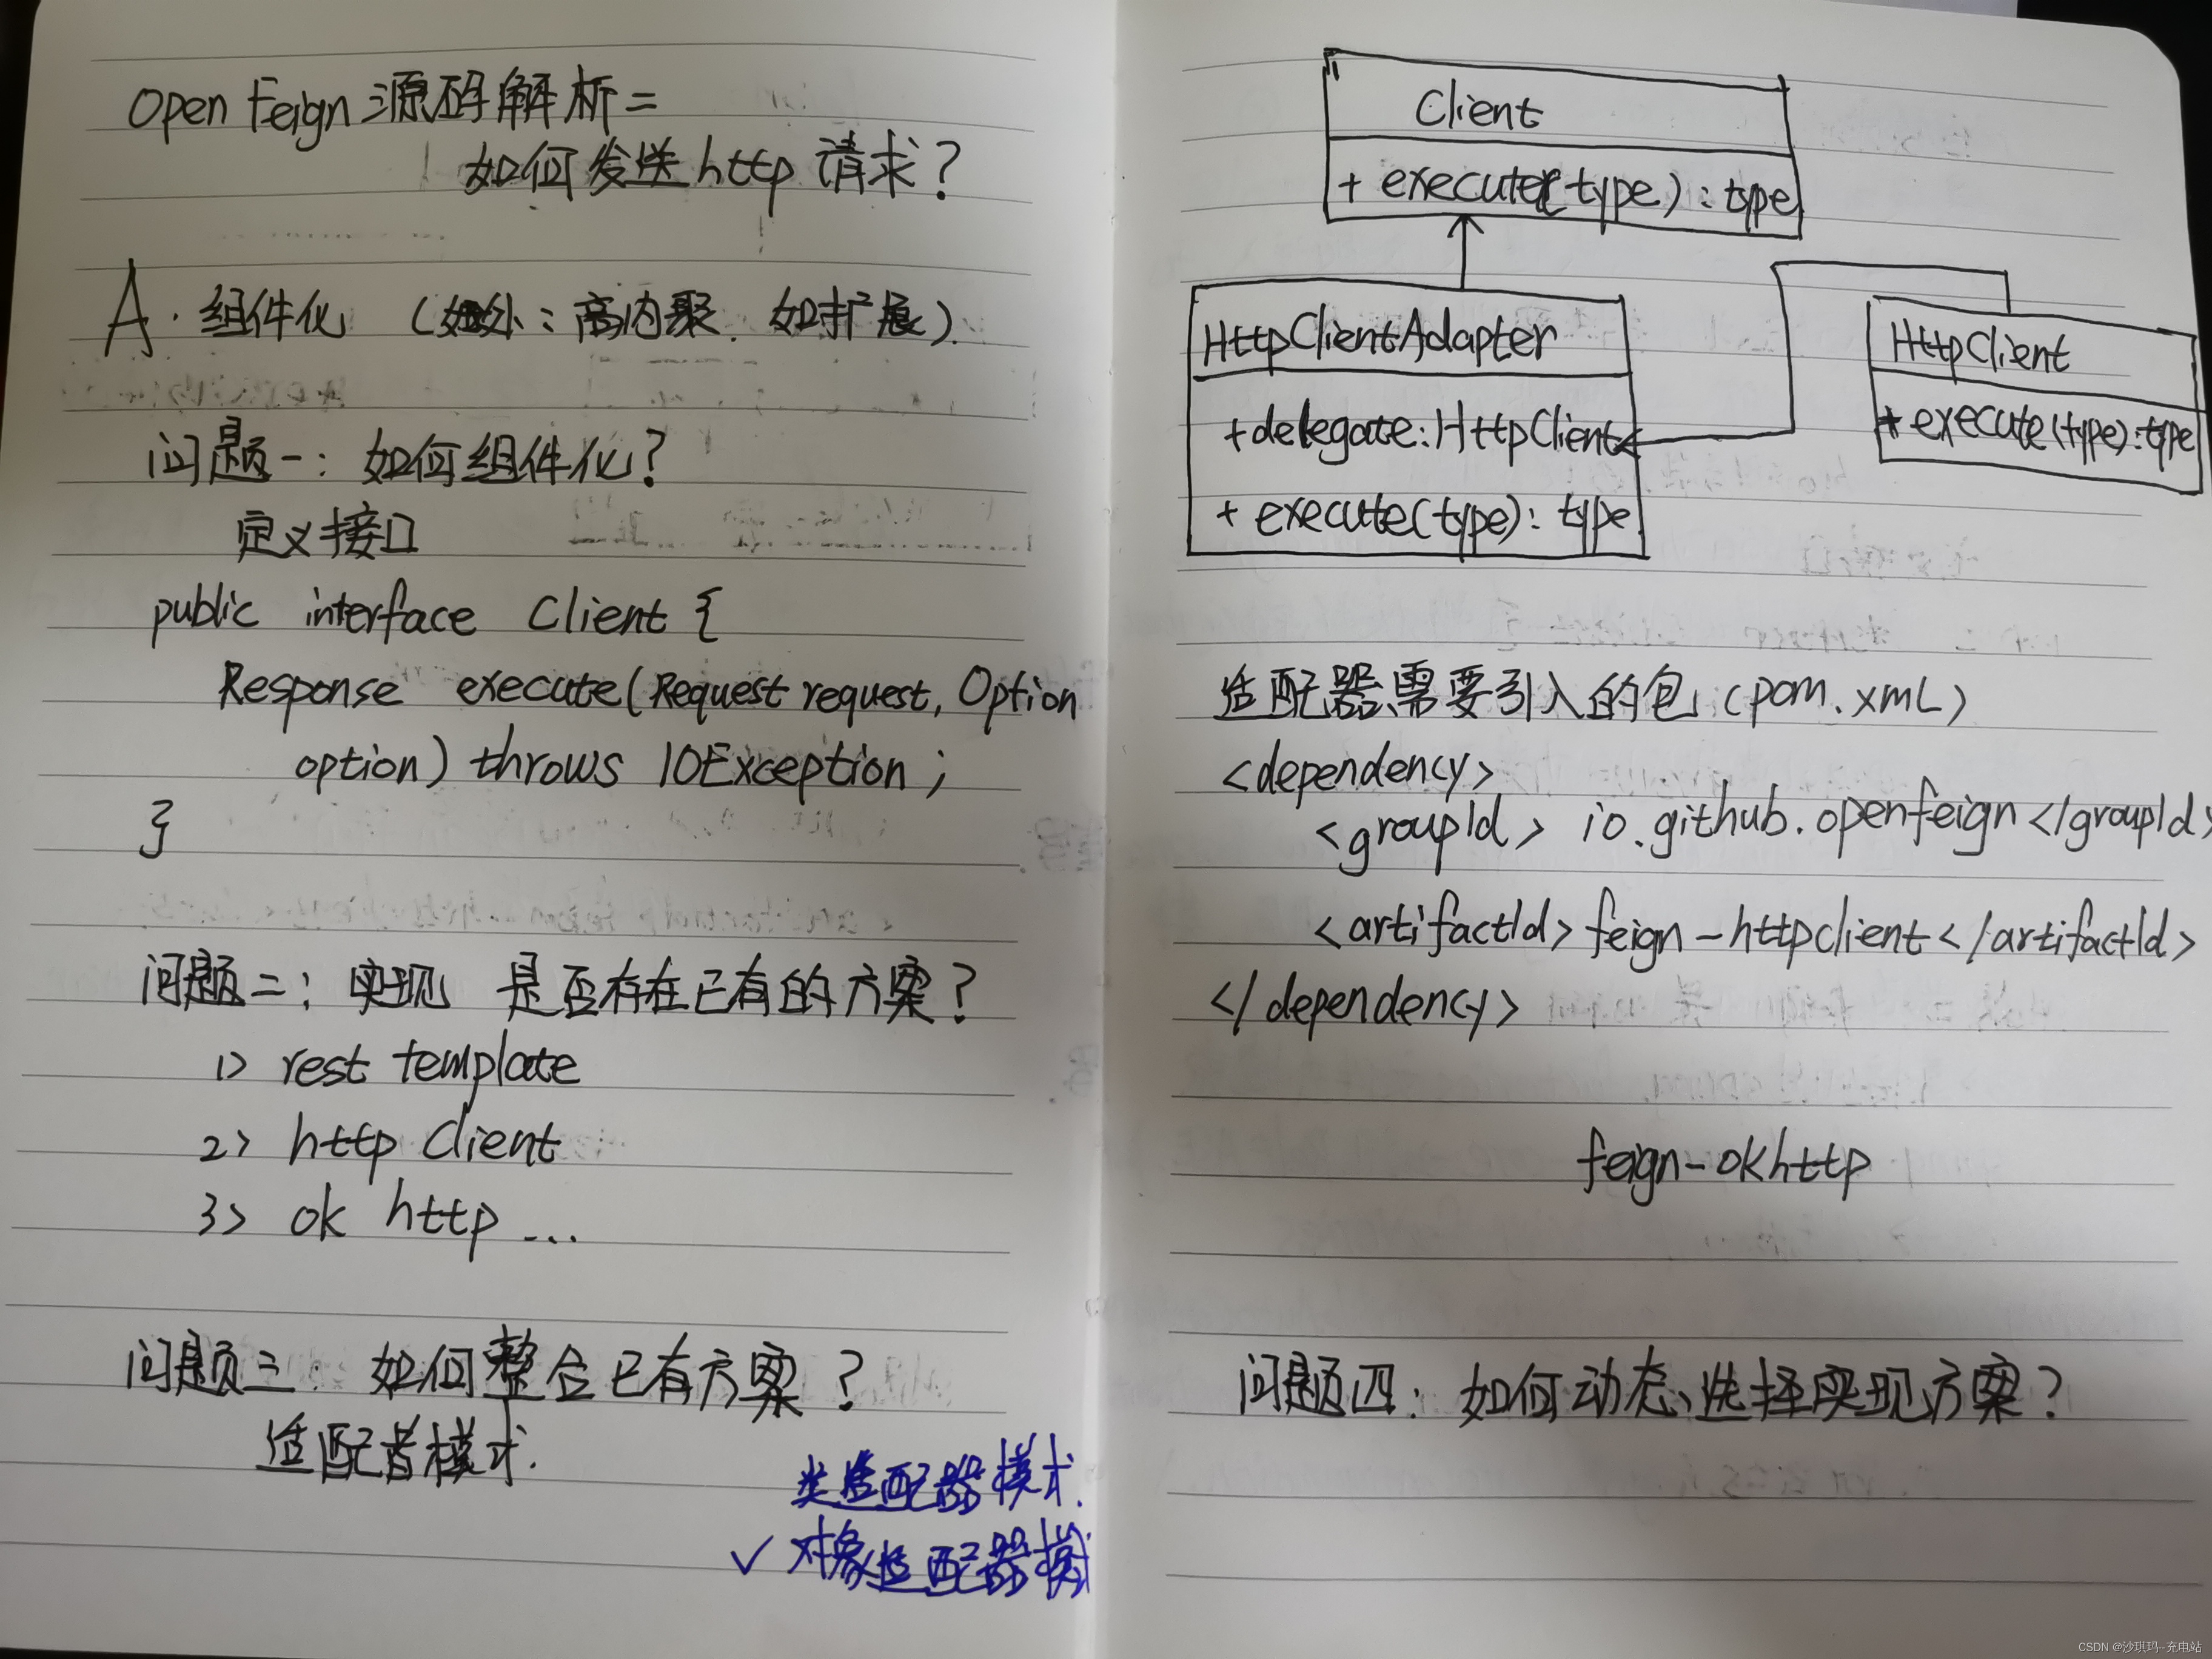 Open Feign 源码解析二
如何发送 http 请求?
A. 组件化 (如外:高内聚. 如扩展).
问题一: 如何组件化?
定义接口
public interface Client {
Response execute(Request request, Option
option) throws IOException;
}
问题二: 实现 是否存在已有的方案?
1> rest template
2> http Client
3> ok http ...
问题三: 如何整合已有方案?
适配者模式.
类适配器模式.
✓ 对象适配器模式
Client
+ execute(type): type
HttpClientAdapter
+delegate:HttpClient
+ execute(type): type
HttpClient
+ execute(type):type
适配器需要引入的包 (pom.xmL)
<dependency>
<groupId> io.github.openfeign</groupId>
<artifactId>feign-httpclient</artifactId>
</dependency>
feign-okhttp
问题四: 如何动态选择实现方案?
CSDN @沙琪玛--充电站